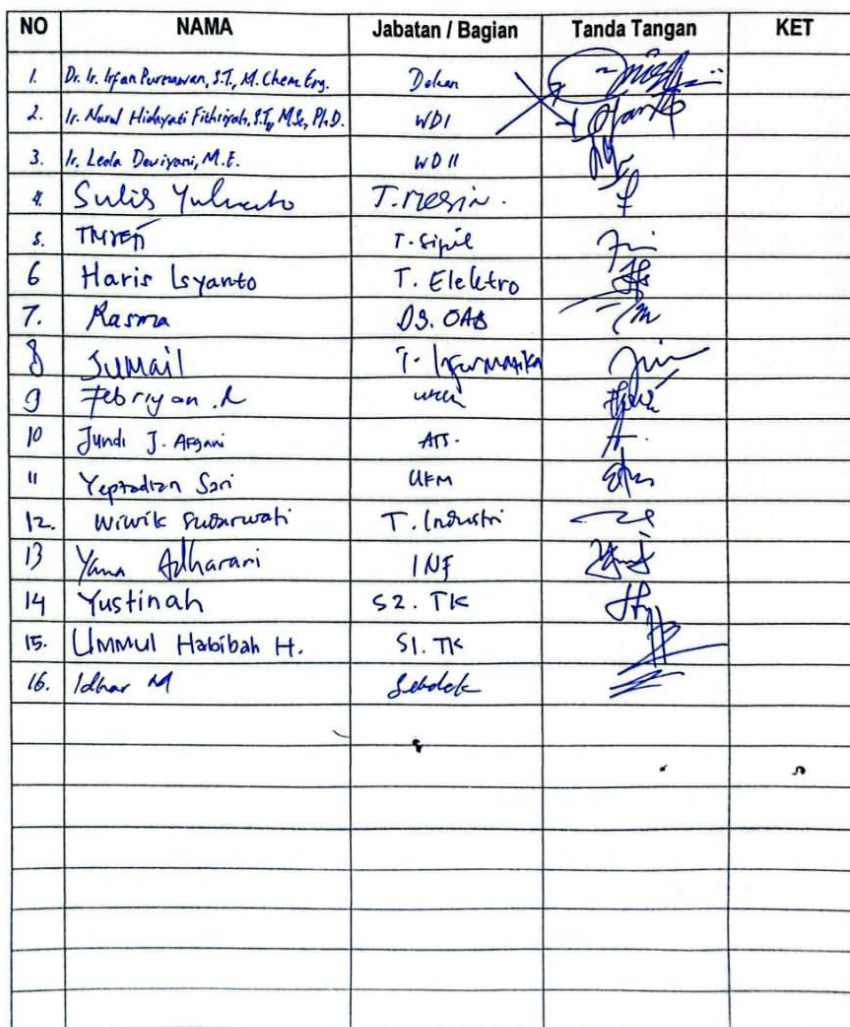 NO NAMA Jabatan / Bagian Tanda Tangan KET
1. Dr. Ir. Irfan Purnawan, S.T., M. Chem. Eng. Dekan
2. Ir. Nurul Hidayati Fithriyah, S.T., M.Sc, Ph.D. WD I
3. Ir. Leola Dewiyani, M.E. WD II
4. Sulis Yulianto T. Mesin.
5. T. Sipil
6 Haris Isyanto T. Elektro
7. Rasma D3. OAB
8 Jumail T. Informatika
9 Febriyan. R
10 Jundi J. Afgani
11 Yeptadian Sari UFM
12. Wiwik Sudarwati T. Industri
13 Yana Adharani INF
14 Yustinah S2. TK
15. Ummul Habibah H. S1. TK
16. Idhar M Sekdek